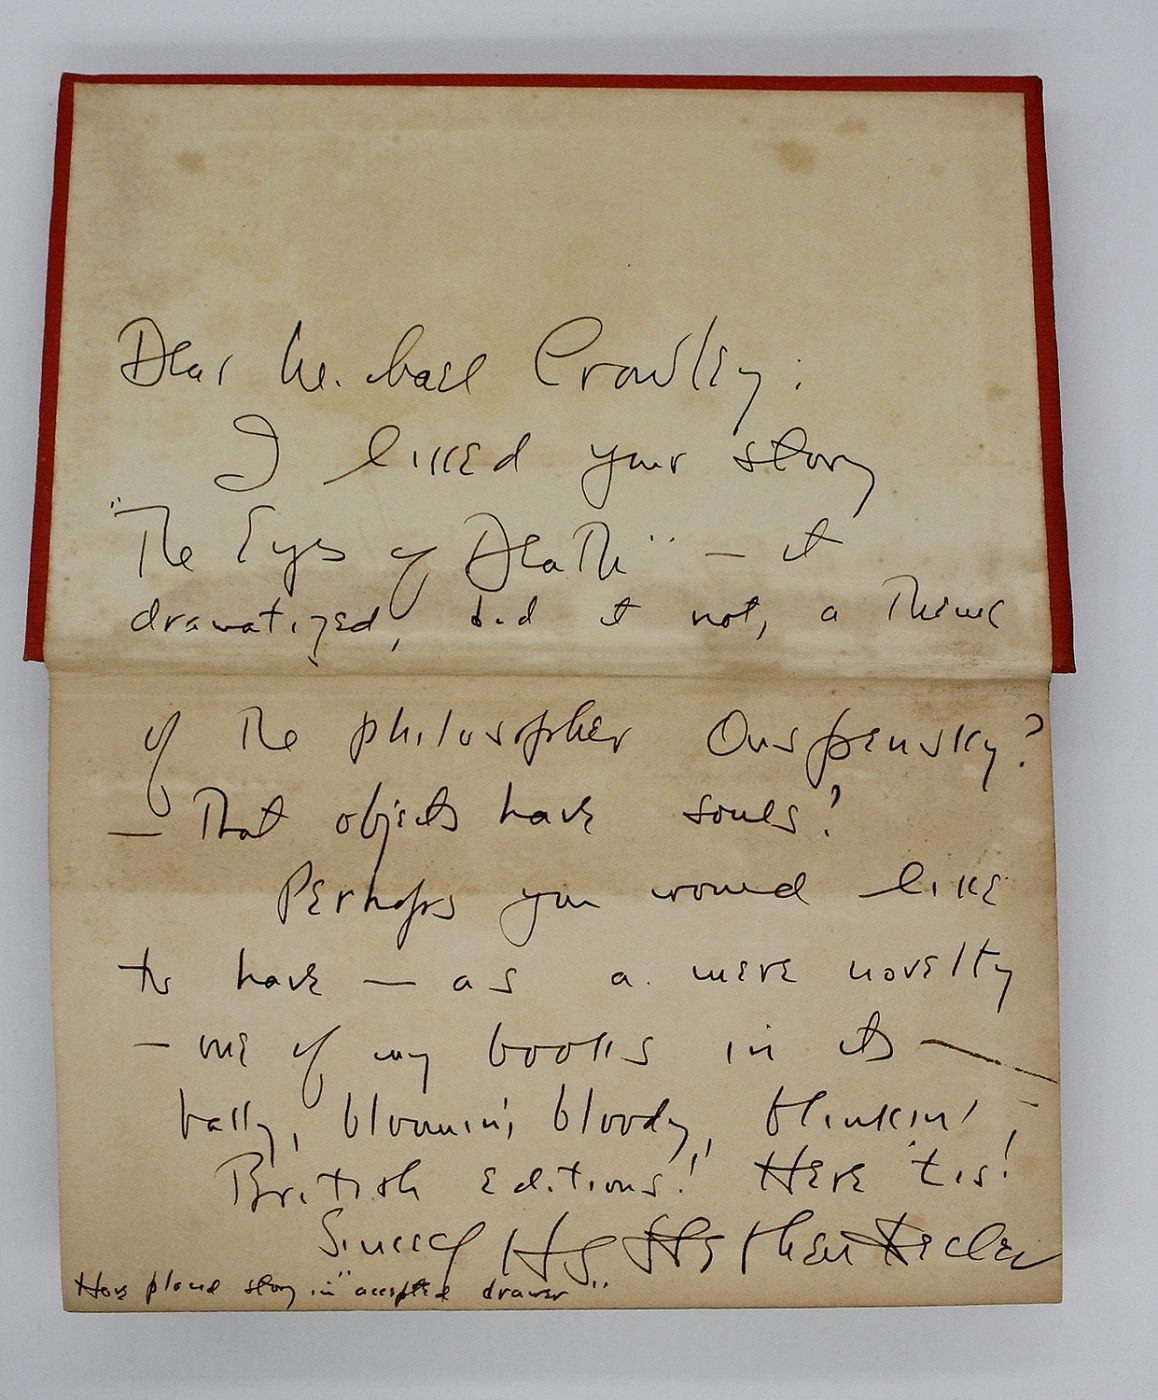 Dear Michael Crowley:
I liked your story
"The Eyes of Death" — it
dramatized, did it not, a theme
of the philosopher Ouspensky?
— That objects have souls?
Perhaps you would like
to have — as a mere novelty
— one of my books in its —
bally, bloomin', bloody, blinkin',
British editions! Here 'tis!
Harry Stephen Keeler
Have placed story in "accepted drawer"